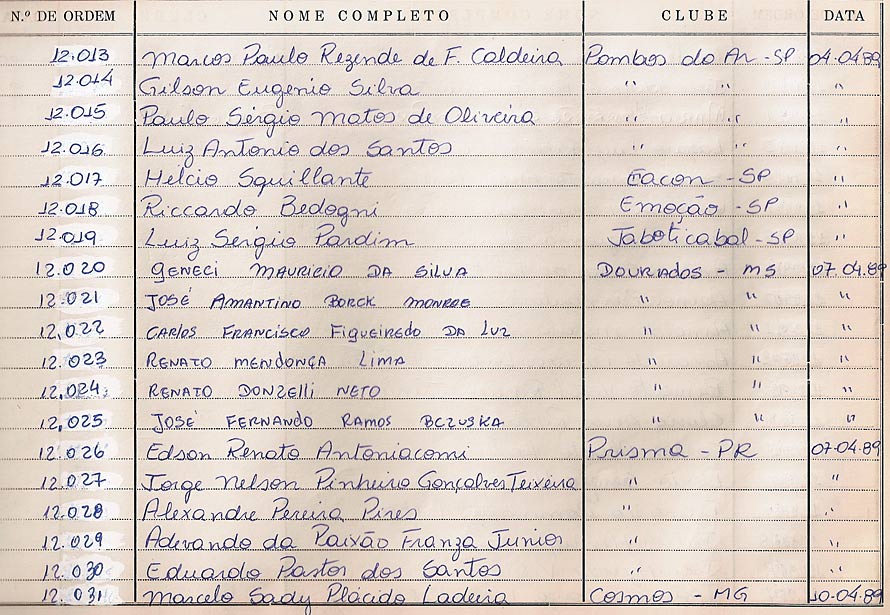 N.º DE ORDEM NOME COMPLETO CLUBE DATA
12.013 Marcos Paulo Rezende de F. Caldeira Pombos do Ar - SP 04.04.89
12.014 Gilson Eugenio Silva " " "
12.015 Paulo Sérgio Matos de Oliveira " " "
12.016 Luiz Antonio dos Santos " " "
12.017 Helcio Squillante Facon - SP "
12.018 Riccardo Bedogni Emoção - SP "
12.019 Luiz Sérgio Pardim Jaboticabal - SP "
12.020 GENECI MAURICIO DA SILVA DOURADOS - MS 07.04.89
12.021 JOSÉ AMANTINO BORCK MONROE " " "
12.022 CARLOS FRANCISCO FIGUEIREDO DA LUZ " " "
12.023 RENATO MENDONÇA LIMA " " "
12.024 RENATO DONZELLI NETO " " "
12.025 JOSÉ FERNANDO RAMOS BCZUSKA " " "
12.026 Edson Renato Antoniacomi Prisma - PR 07-04.89
12.027 Jorge Nelson Pinheiro Gonçalves Teixeira " "
12.028 Alexandre Pereira Pires " "
12.029 Aderando da Paixão Franza Junior " "
12.030 Eduardo Pastor dos Santos " "
12.031 Marcelo Sady Plácido Ladeira Cosmos - MG 10-04.89